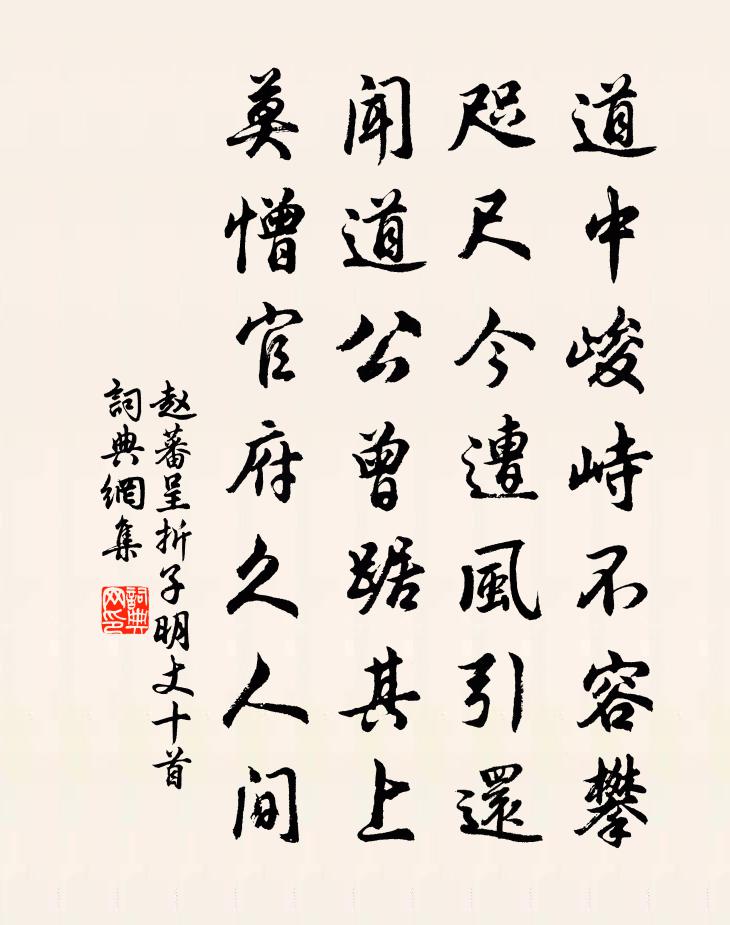 道中峻峙不容攀
咫尺今遭風引還
聞道公曾踞其上
莫憎官府久人間
赵蕃呈折子明丈十首
詞典網集
詞典
网印